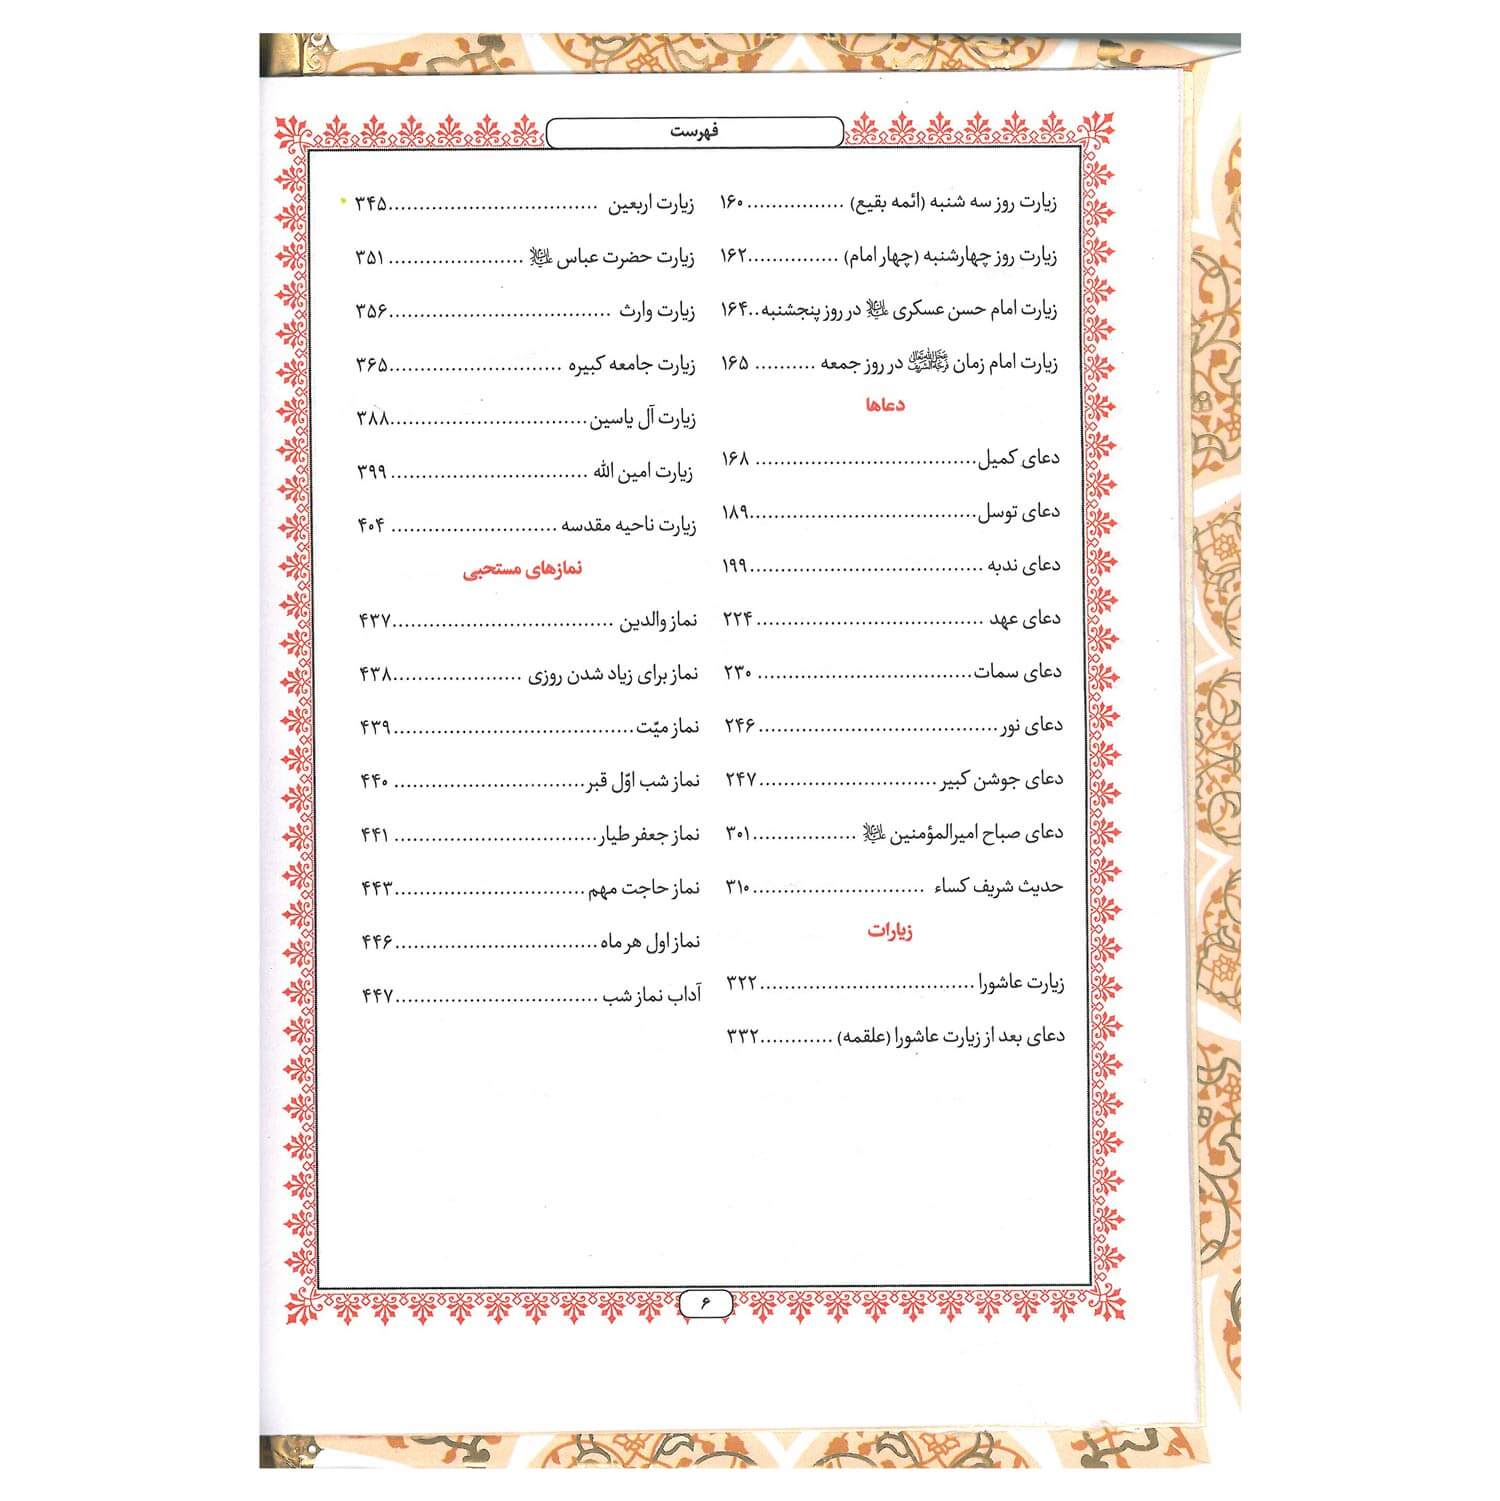 فهرست
زیارت روز سه شنبه (ائمه بقیع) ................ ۱۶۰
زیارت روز چهارشنبه (چهار امام) ...............۱۶۲
زیارت امام حسن عسکری علیه‌السلام در روز پنجشنبه..۱۶۴
زیارت امام زمان عجل الله تعالی فرجه الشریف در روز جمعه .......... ۱۶۵
دعاها
دعای کمیل.................................... ۱۶۸
دعای توسل.....................................۱۸۹
دعای ندبه ......................................۱۹۹
دعای عهد ..................................... ۲۲۴
دعای سمات................................... ۲۳۰
دعای نور....................................... ۲۴۶
دعای جوشن کبیر.............................۲۴۷
دعای صباح امیرالمؤمنین علیه‌السلام .................۳۰۱
حدیث شریف کساء ............................۳۱۰
زیارات
زیارت عاشورا................................... ۳۲۲
دعای بعد از زیارت عاشورا (علقمه) ............۳۳۲
زیارت اربعین ..................................۳۴۵
زیارت حضرت عباس علیه‌السلام ...................... ۳۵۱
زیارت وارث ....................................۳۵۶
زیارت جامعه کبیره ............................۳۶۵
زیارت آل یاسین................................۳۸۸
زیارت امین الله ................................ ۳۹۹
زیارت ناحیه مقدسه ........................... ۴۰۴
نمازهای مستحبی
نماز والدین ....................................۴۳۷
نماز برای زیاد شدن روزی .....................۴۳۸
نماز میّت.......................................۴۳۹
نماز شب اوّل قبر............................... ۴۴۰
نماز جعفر طیار................................. ۴۴۱
نماز حاجت مهم ...............................۴۴۳
نماز اول هر ماه................................. ۴۴۶
آداب نماز شب .................................۴۴۷
۶